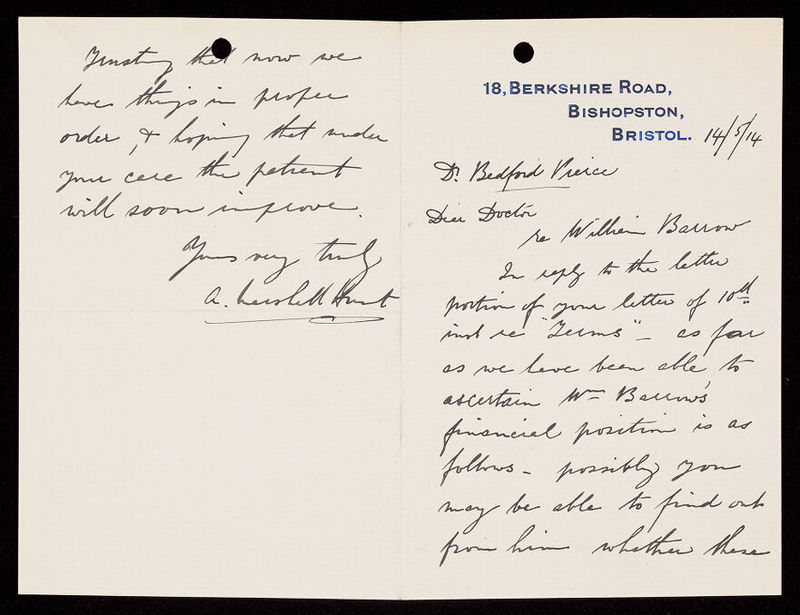 Trusting that now we
have things in proper
order, & hoping that under
your care the patient
will soon improve.
Yours very truly
A. Hunt
18, BERKSHIRE ROAD,
BISHOPSTON,
BRISTOL. 14/5/14
Dr. Bedford Pierce
Dear Doctor
re William Barrow
In reply to the latter
portion of your letter of 10th
inst re "Terms" - as far
as we have been able, to
ascertain Wm Barrow's
financial position is as
follows - possibly you
may be able to find out
from him whether these